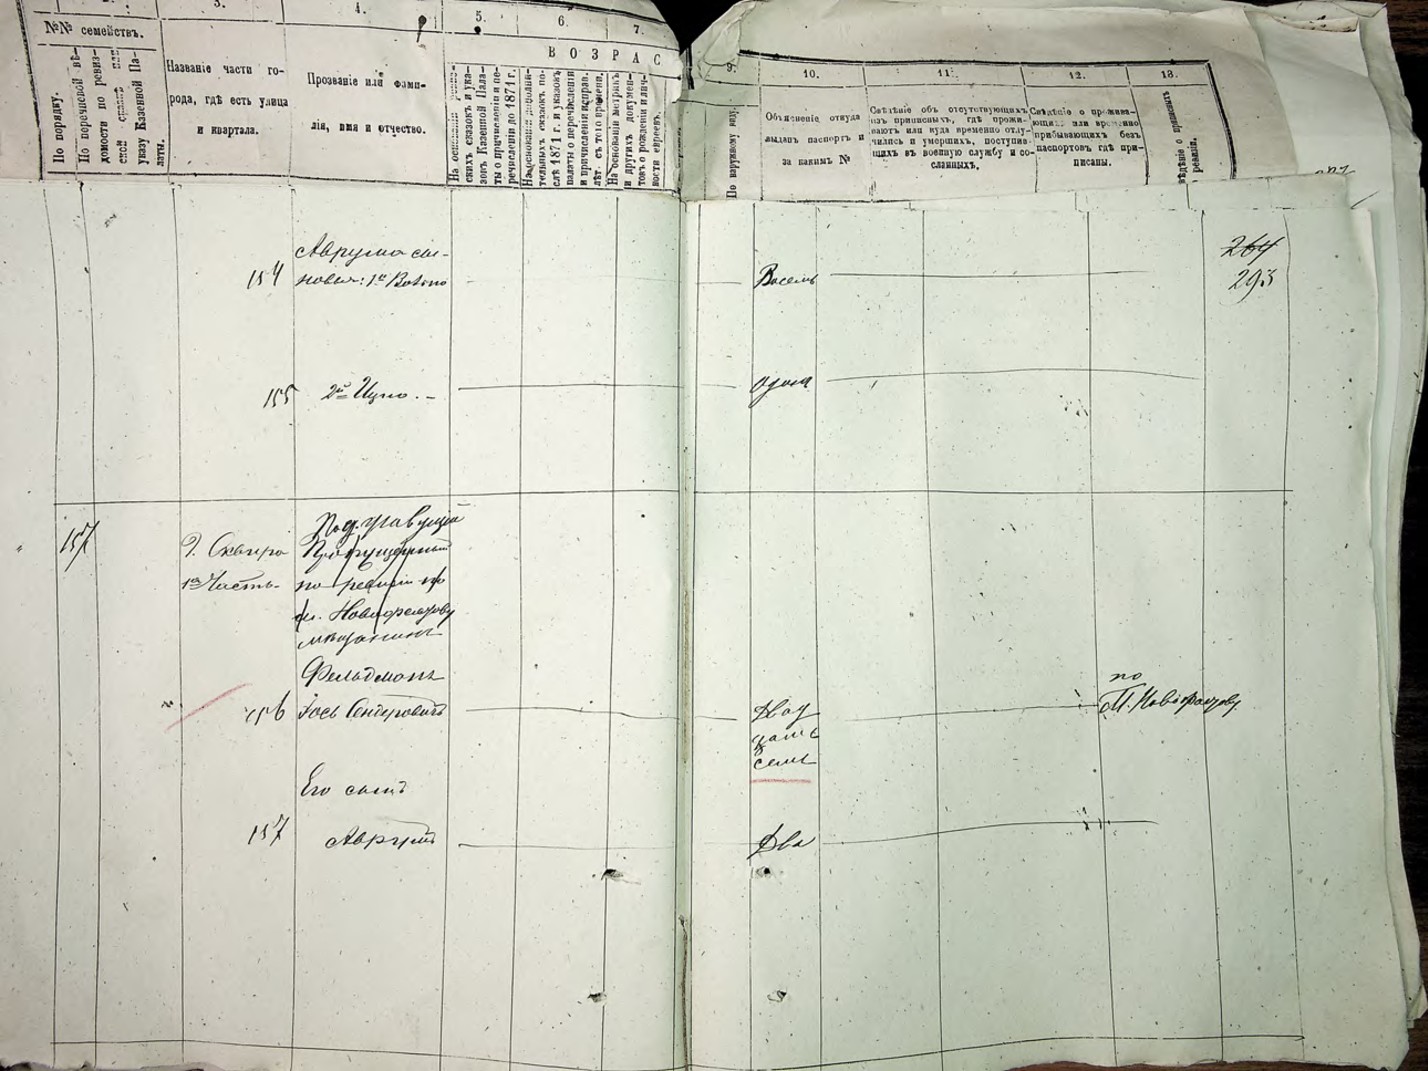 3.
4.
5.
6.
7.
№№ семействъ.
ВОЗРАС
По порядку.
По перечневой вѣ-
домости по ревиз-
указу Казенной Па-
латы.
Названіе части го-
рода, гдѣ есть улица
и квартала.
Прозваніе или фами-
лія, имя и отчество.
скихъ сказокъ и ука-
зовъ Казенной Пала-
ты о причисленіи и пе-
речисленіи до 1871 г.
На основаніи дополни-
тельныхъ сказокъ по-
слѣ 1871 г. и указовъ
палаты о перечисленіи
и причисленіи исправ.
лѣт. съ того времени.
На основаніи метрикъ
и другихъ докумен-
товъ о рожденіи и лич-
ности евреевъ.
9.
10.
11.
12.
13.
По наружному виду.
Объясненіе откуда
выданъ паспортъ и
за какимъ №
Свѣдѣніе объ отсутствующихъ
изъ приписныхъ, гдѣ прожи-
ваютъ или куда временно отлу-
чились и умершихъ, поступив-
щихъ въ военную службу и со-
сланныхъ.
Свѣдѣніе о прожива-
ющихъ или временно
прибывающихъ безъ
паспортовъ гдѣ при-
писаны.
вѣдѣніе о
ревизіи.
264
293
Аврума сы-
154 новья: 1й
Восемь
155 2й Ицко. -
одинъ
157
Г. Сквира
1я Часть
по ревизіи по
м.
мѣщанинъ
Фельдманъ
156 Іось
Двад
цать
семь
по
М.
Его сынъ
157 Аврумъ
Два